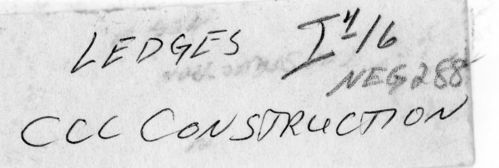 LEDGES I4/6
NEG 288
CCC CONSTRUCTION